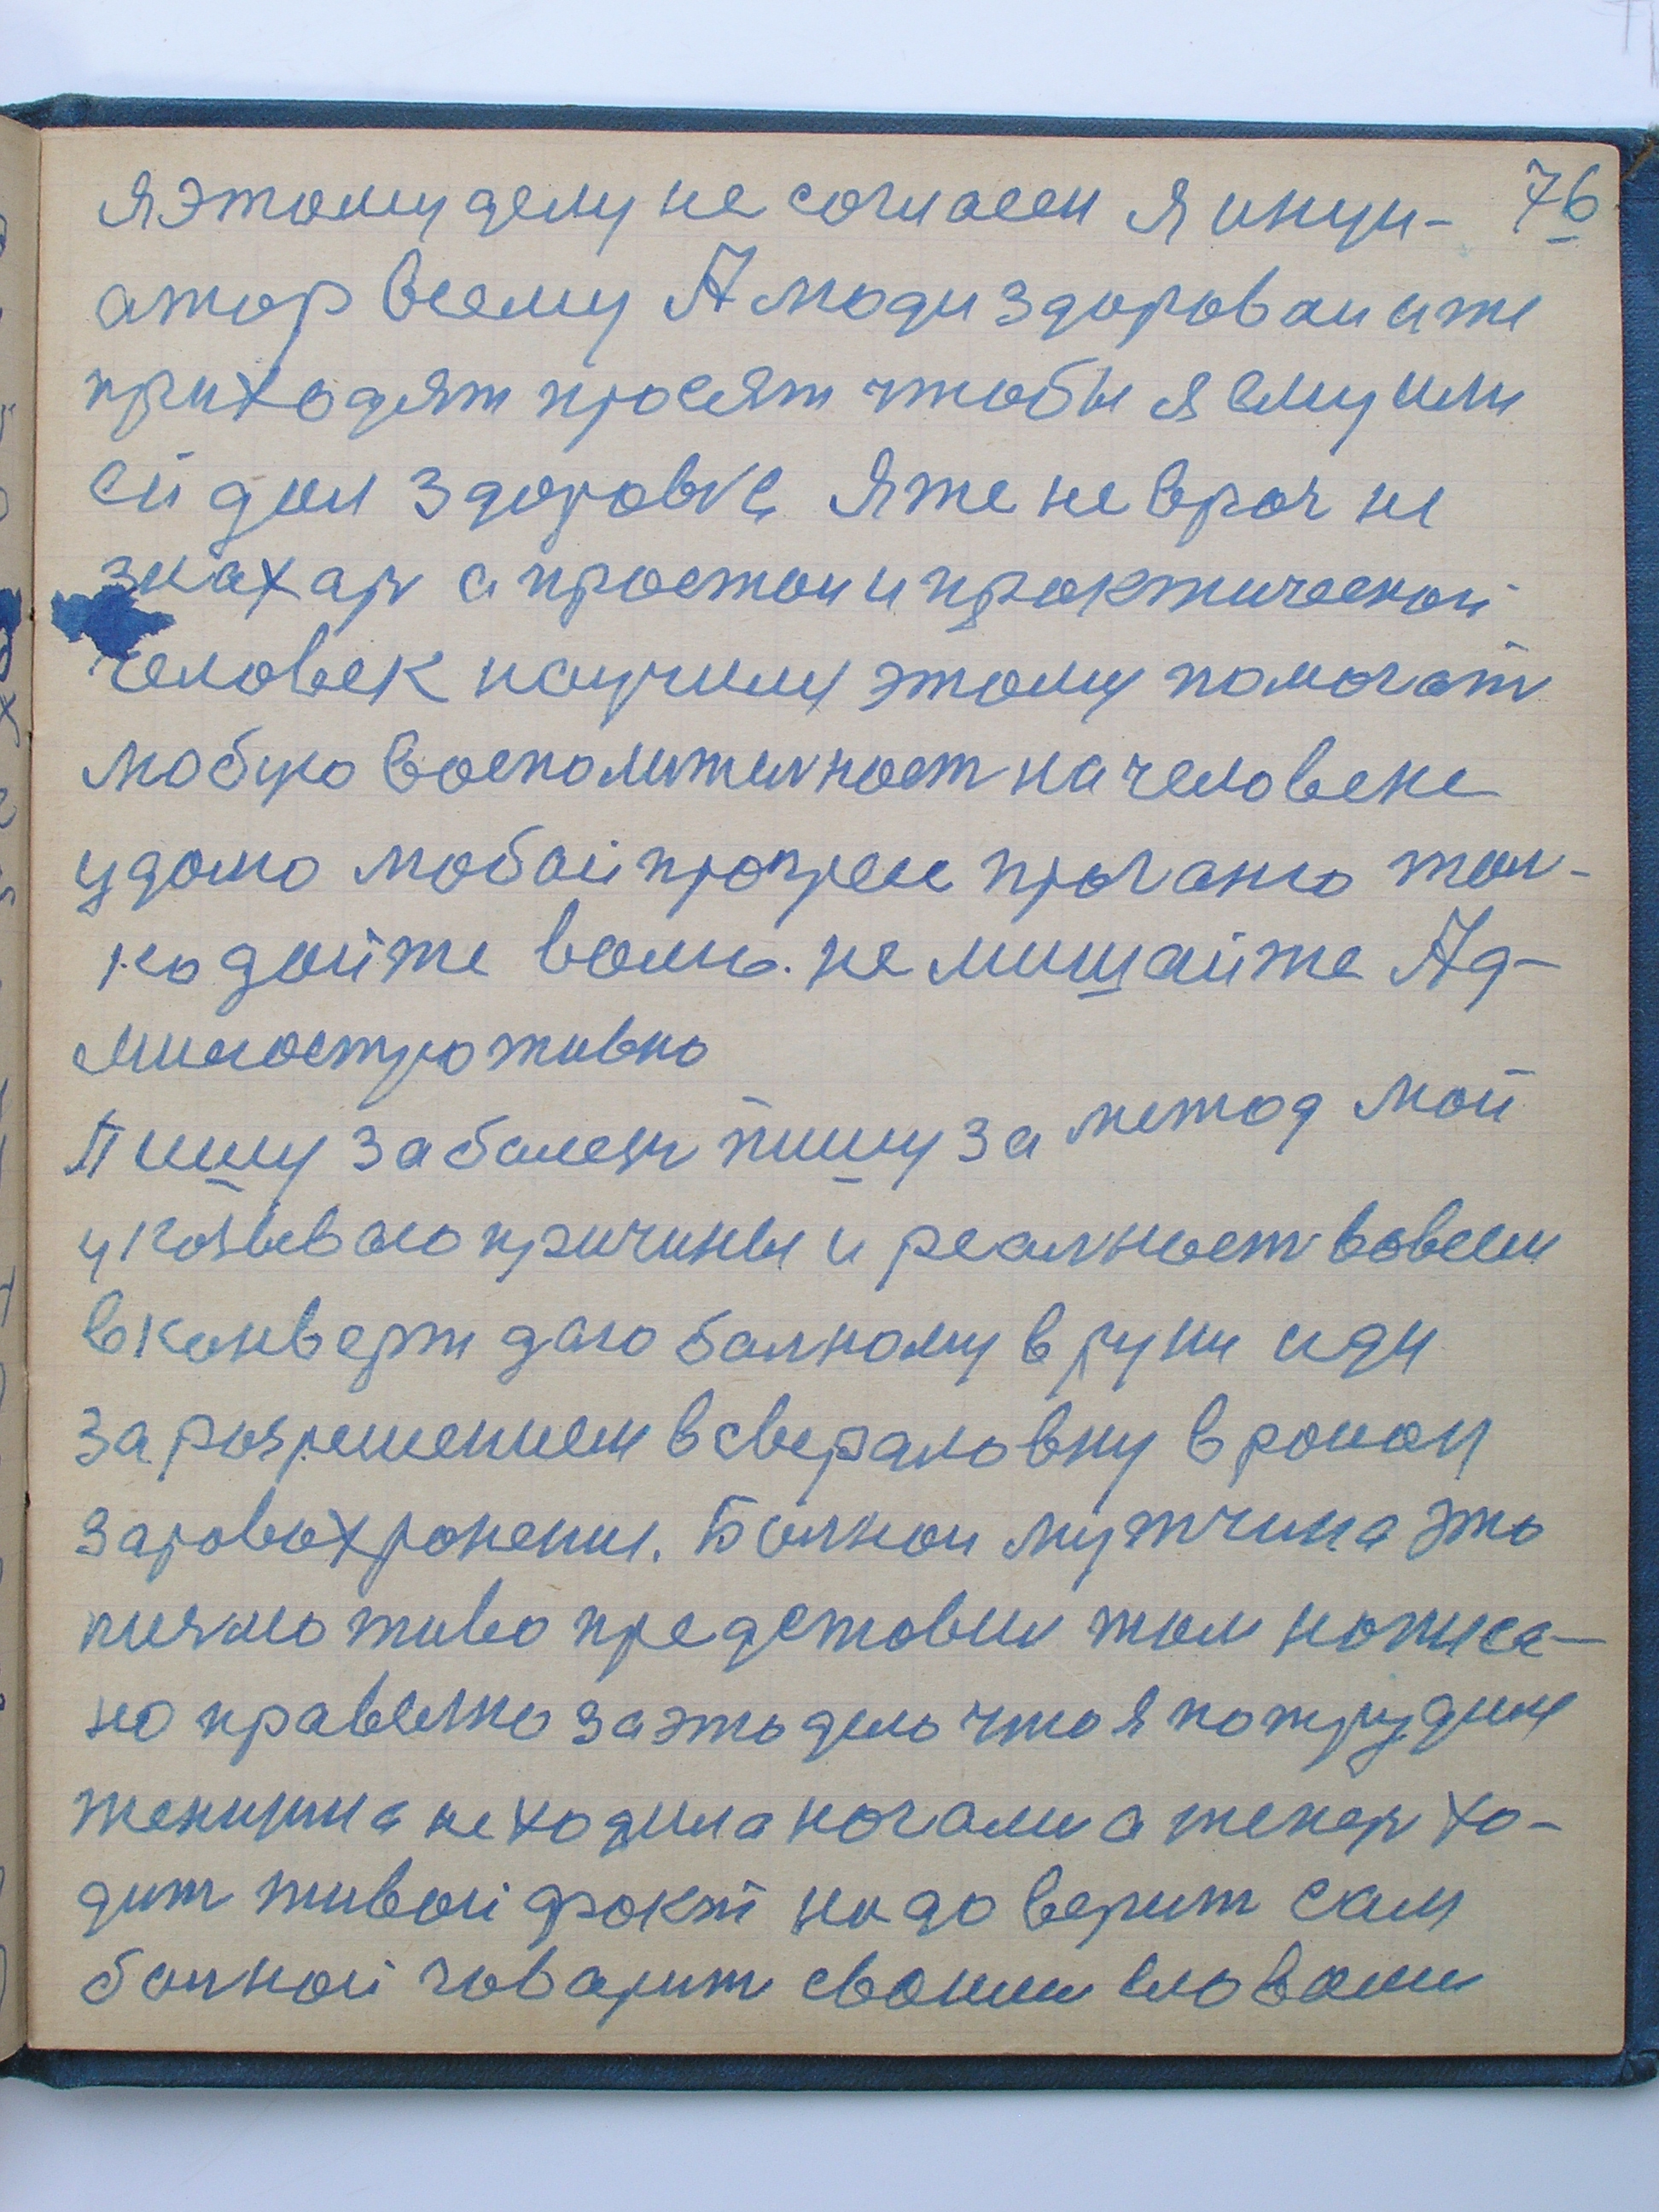 76
я этому делу не согласен я иници-
атор всему А люди здороваи аже
приходят просят чтобы я ему или
ей дал здоровье Я же не врач не
знахар а простои и практическои
человек научили этому помогат
любую восполителност на человеке
удаляю любой прогрес проганяю тол-
ко дайте волю. не мишайте Ад-
миностротивно
Пишу за болезн пишу за метод мой
указываю причины и реалност вовсем
в конверт даю болному в руки иди
за розрешением в свердловку в ройои
здровохронения. Болнои мужчина это
писмо живо представил там написа-
но правелно за это дело что я потрудил
женщина не ходила ногами а тепер хо-
дит живой факт надо верит сам
болной говарит своими словами